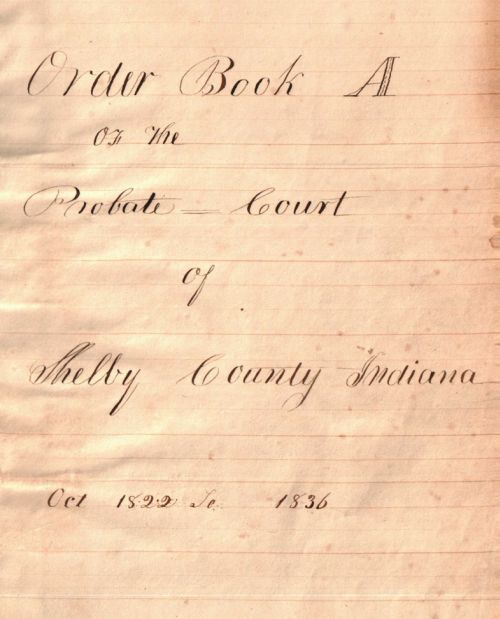 Order Book A
OF The
Probate = Court
of
Shelby County Indiana
Oct 1822 To 1836